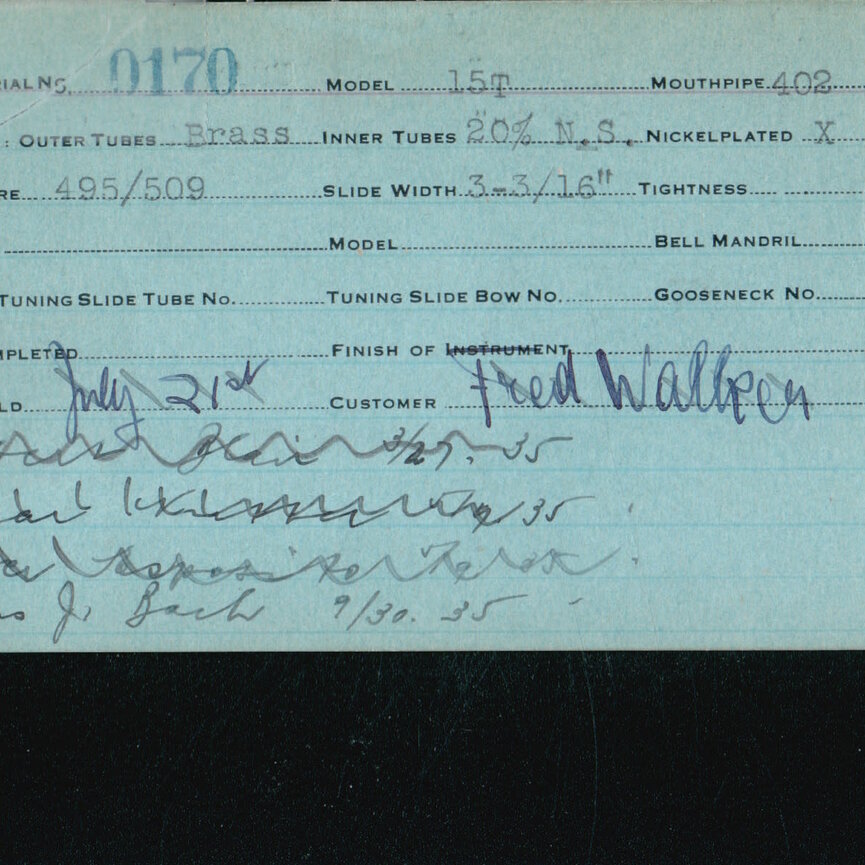 RIAL No. 0170 MODEL 15T MOUTHPIPE 402
: OUTER TUBES Brass INNER TUBES 20% N.S. NICKELPLATED X
RE 495/509 SLIDE WIDTH 3-3/16" TIGHTNESS
MODEL BELL MANDRIL
TUNING SLIDE TUBE No. TUNING SLIDE BOW No. GOOSENECK No.
MPLETED FINISH OF INSTRUMENT
LD July 21st CUSTOMER Fred Walker
3/27. 35
35
J. Bach 9/30. 35